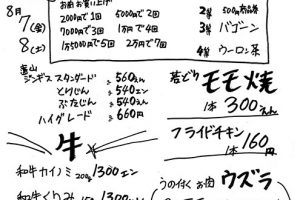 8月
7(金)
8(土)
お肉お買い上げ
2000円で1回 5000円で2回
7000円で3回 1万円で4回
1万5000円で5回 2万円で7回
2等 500円商品券
3等 バゴーン
4等 ウーロン茶
ジンギス スタンダード 560えん
とりじん 540えん
ぶたじん 540えん
ハイグレード 660円
若どり モモ焼
1本 300えん
フライドチキン
1本 160円
牛
和牛カイノミ 200g 1300エン
和牛くりみ 1300
うの付く お肉 ウズラ